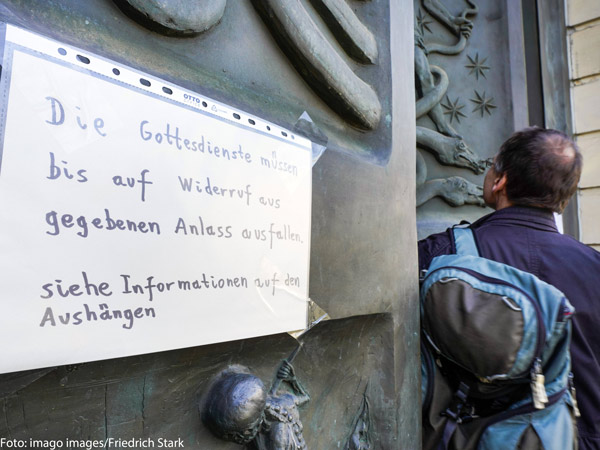 OTTO
Die Gottesdienste müssen
bis auf Widerruf aus
gegebenen Anlass ausfallen.
siehe Informationen auf den
Aushängen
Foto: imago images/Friedrich Stark